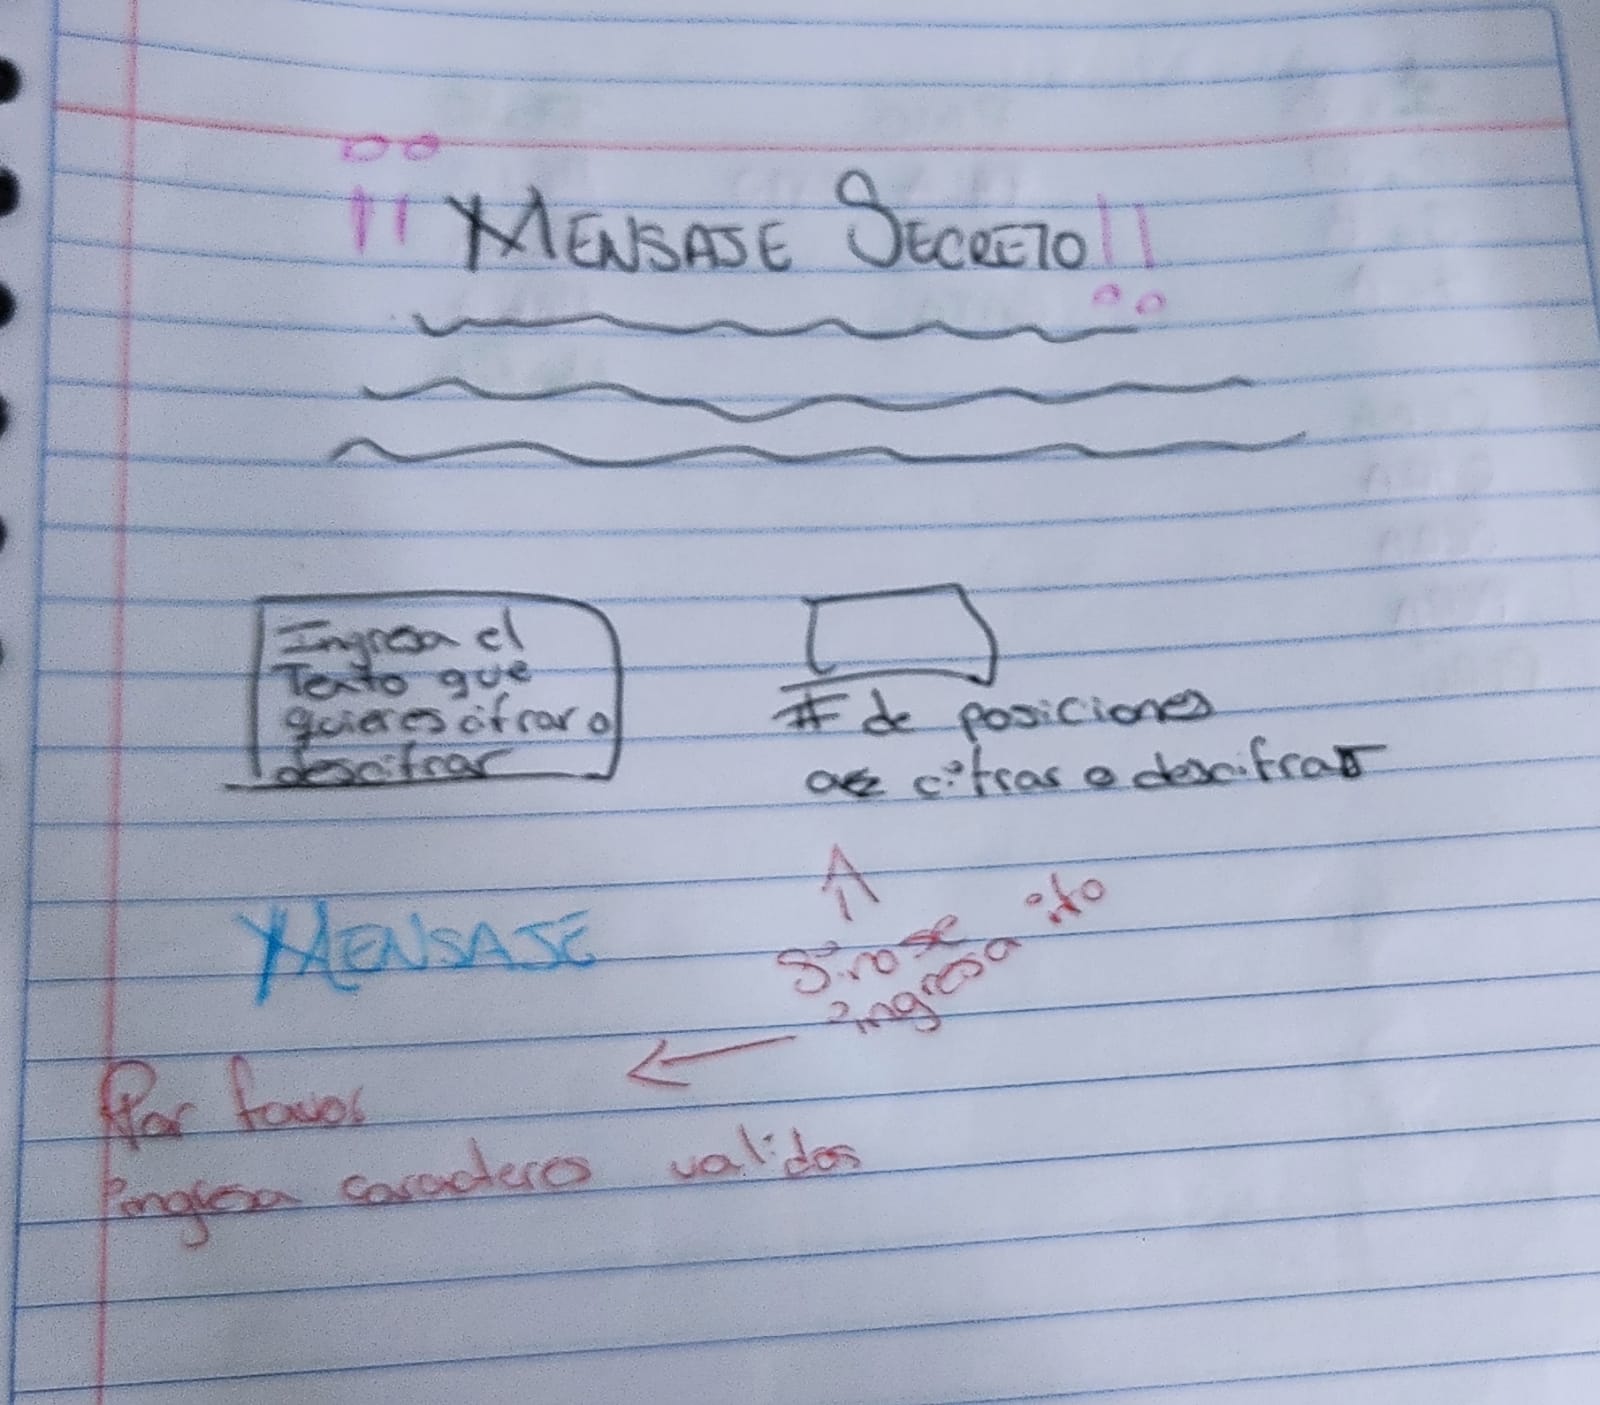 ¡¡ MENSAJE SECRETO!!
Ingresa el
Texto que
quieres cifrar o
descifrar
# de posiciones
a cifrar o descifrar
MENSAJE
Si no se
ingresa ito
Por favor
ingresa caracteres validos